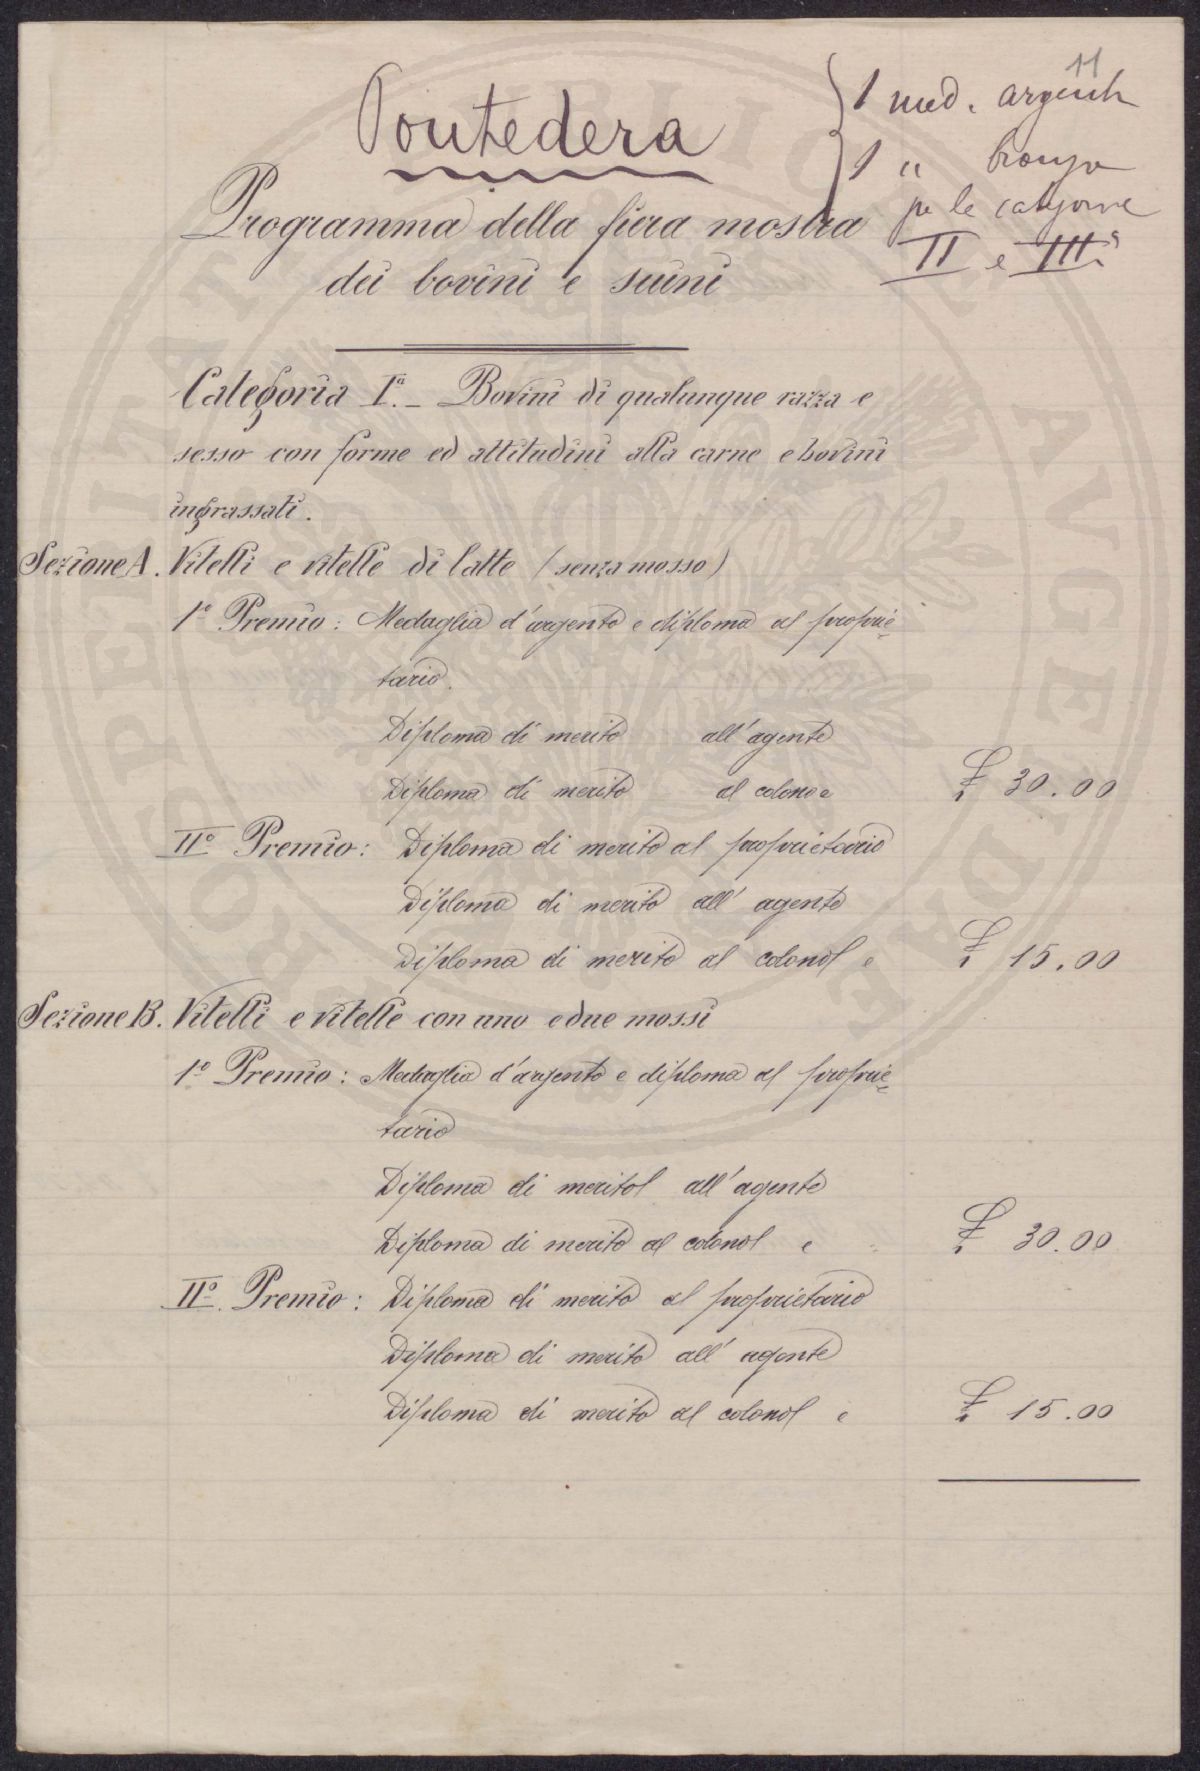 11
Pontedera
1 med. argento
1 " bronzo
pe le categorie
II e IIIª
Programma della fiera mostra
dei bovini e suini
Categoria Iª. - Bovini di qualunque razza e
sesso con forme ed attitudini alla carne e bovini
ingrassati.
Sezione A. Vitelli e vitelle di latte (senza mosso)
1º Premio: Medaglia d'argento e diploma al proprie=
tario.
Diploma di merito all'agente
Diploma di merito al colono e £ 30.00
IIº Premio: Diploma di merito al proprietario
Diploma di merito all' agente
Diploma di merito al colono e £ 15.00
Sezione B. Vitelli e vitelle con uno e due mossi
1º Premio: Medaglia d'argento e diploma al proprie=
tario
Diploma di merito all'agente
Diploma di merito al colono e £ 30.00
IIº. Premio: Diploma di merito al proprietario
Diploma di merito all' agente
Diploma di merito al colono e £ 15.00